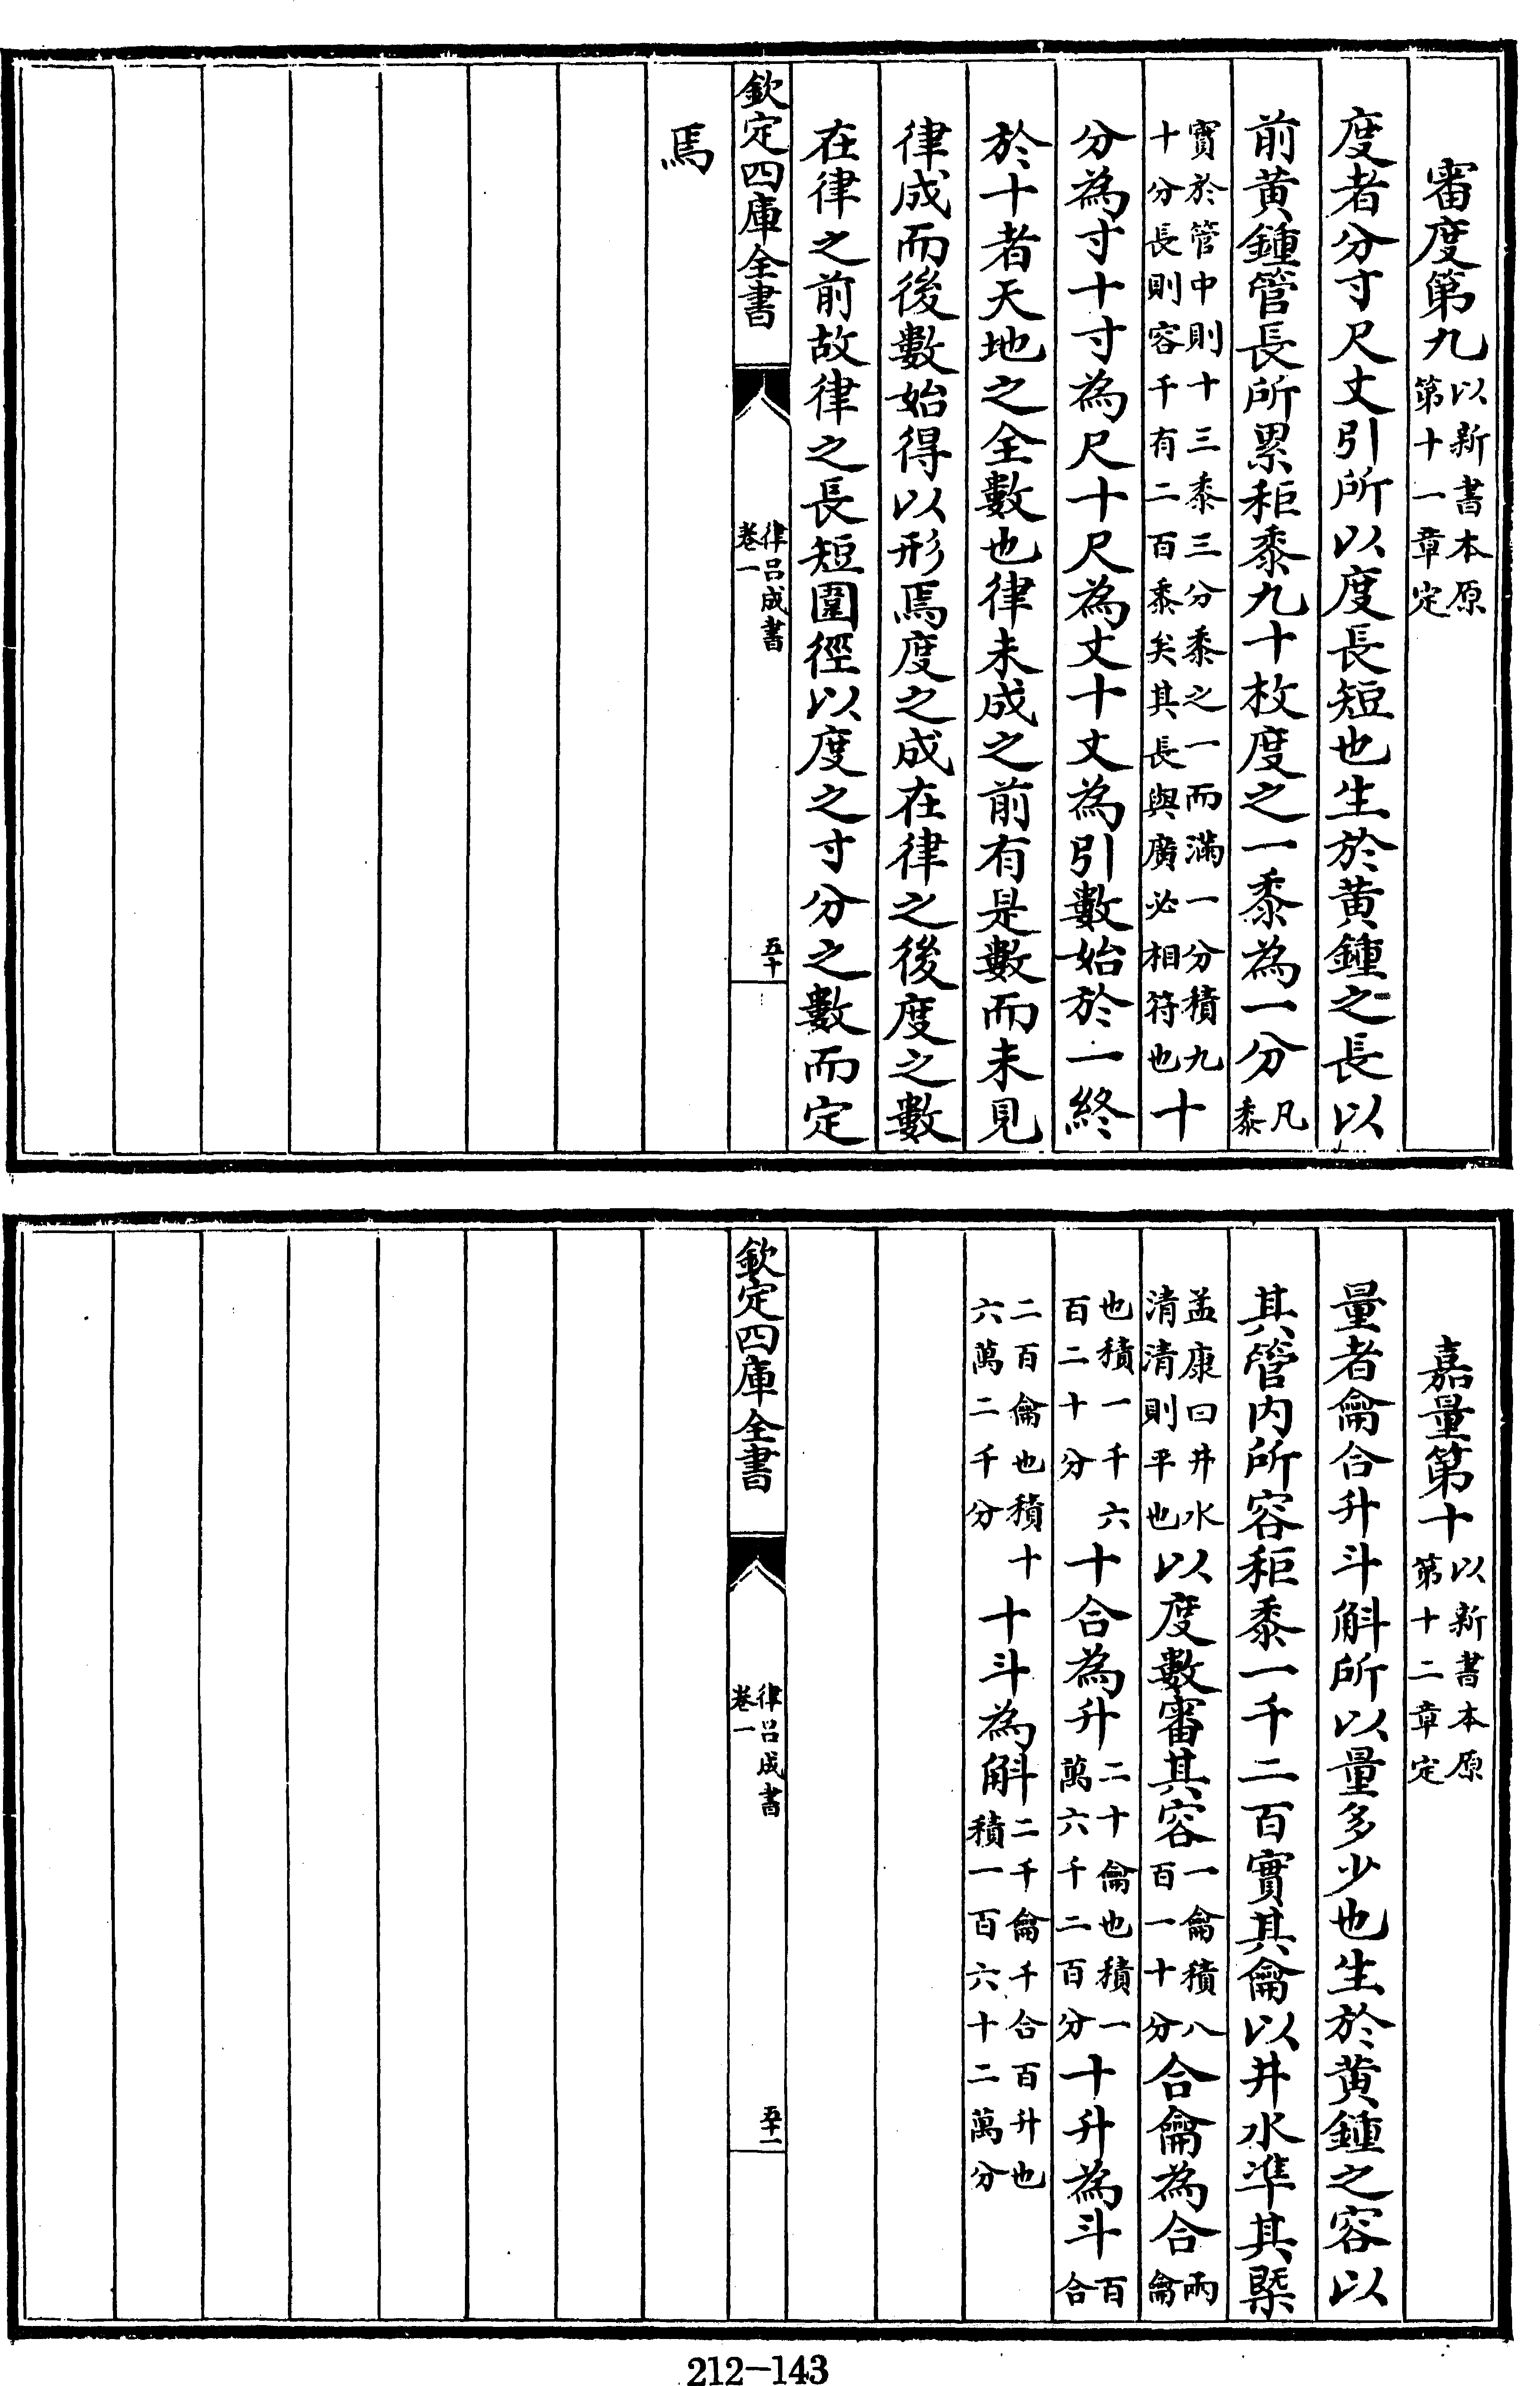 審度第九以新書本原第十一章定
度者分寸尺丈引所以度長短也生於黄鍾之長以
前黄鍾管長所累秬黍九十枚度之一黍為一分凡黍
實於管中則十三黍三分黍之一而滿一分積九十分長則容千有二百黍矣其長與廣必相符也十
分為寸十寸為尺十尺為丈十丈為引數始於一終
於十者天地之全數也律未成之前有是數而未見
律成而後數始得以形焉度之成在律之後度之數
在律之前故律之長短圍徑以度之寸分之數而定
焉
欽定四庫全書
律吕成書
卷一
五十
嘉量第十以新書本原第十二章定
量者龠合升斗斛所以量多少也生於黄鍾之容以
其管内所容秬黍一千二百實其龠以井水凖其槩
孟康曰井水清清則平也以度數審其容一龠積八百一十分合龠為合兩龠
也積一千六百二十分十合為升二十龠也積一萬六千二百分十升為斗百合
二百龠也積十六萬二千分十斗為斛二千龠千合百升也積一百六十二萬分
欽定四庫全書
律吕成書
卷一
五十一
212-143